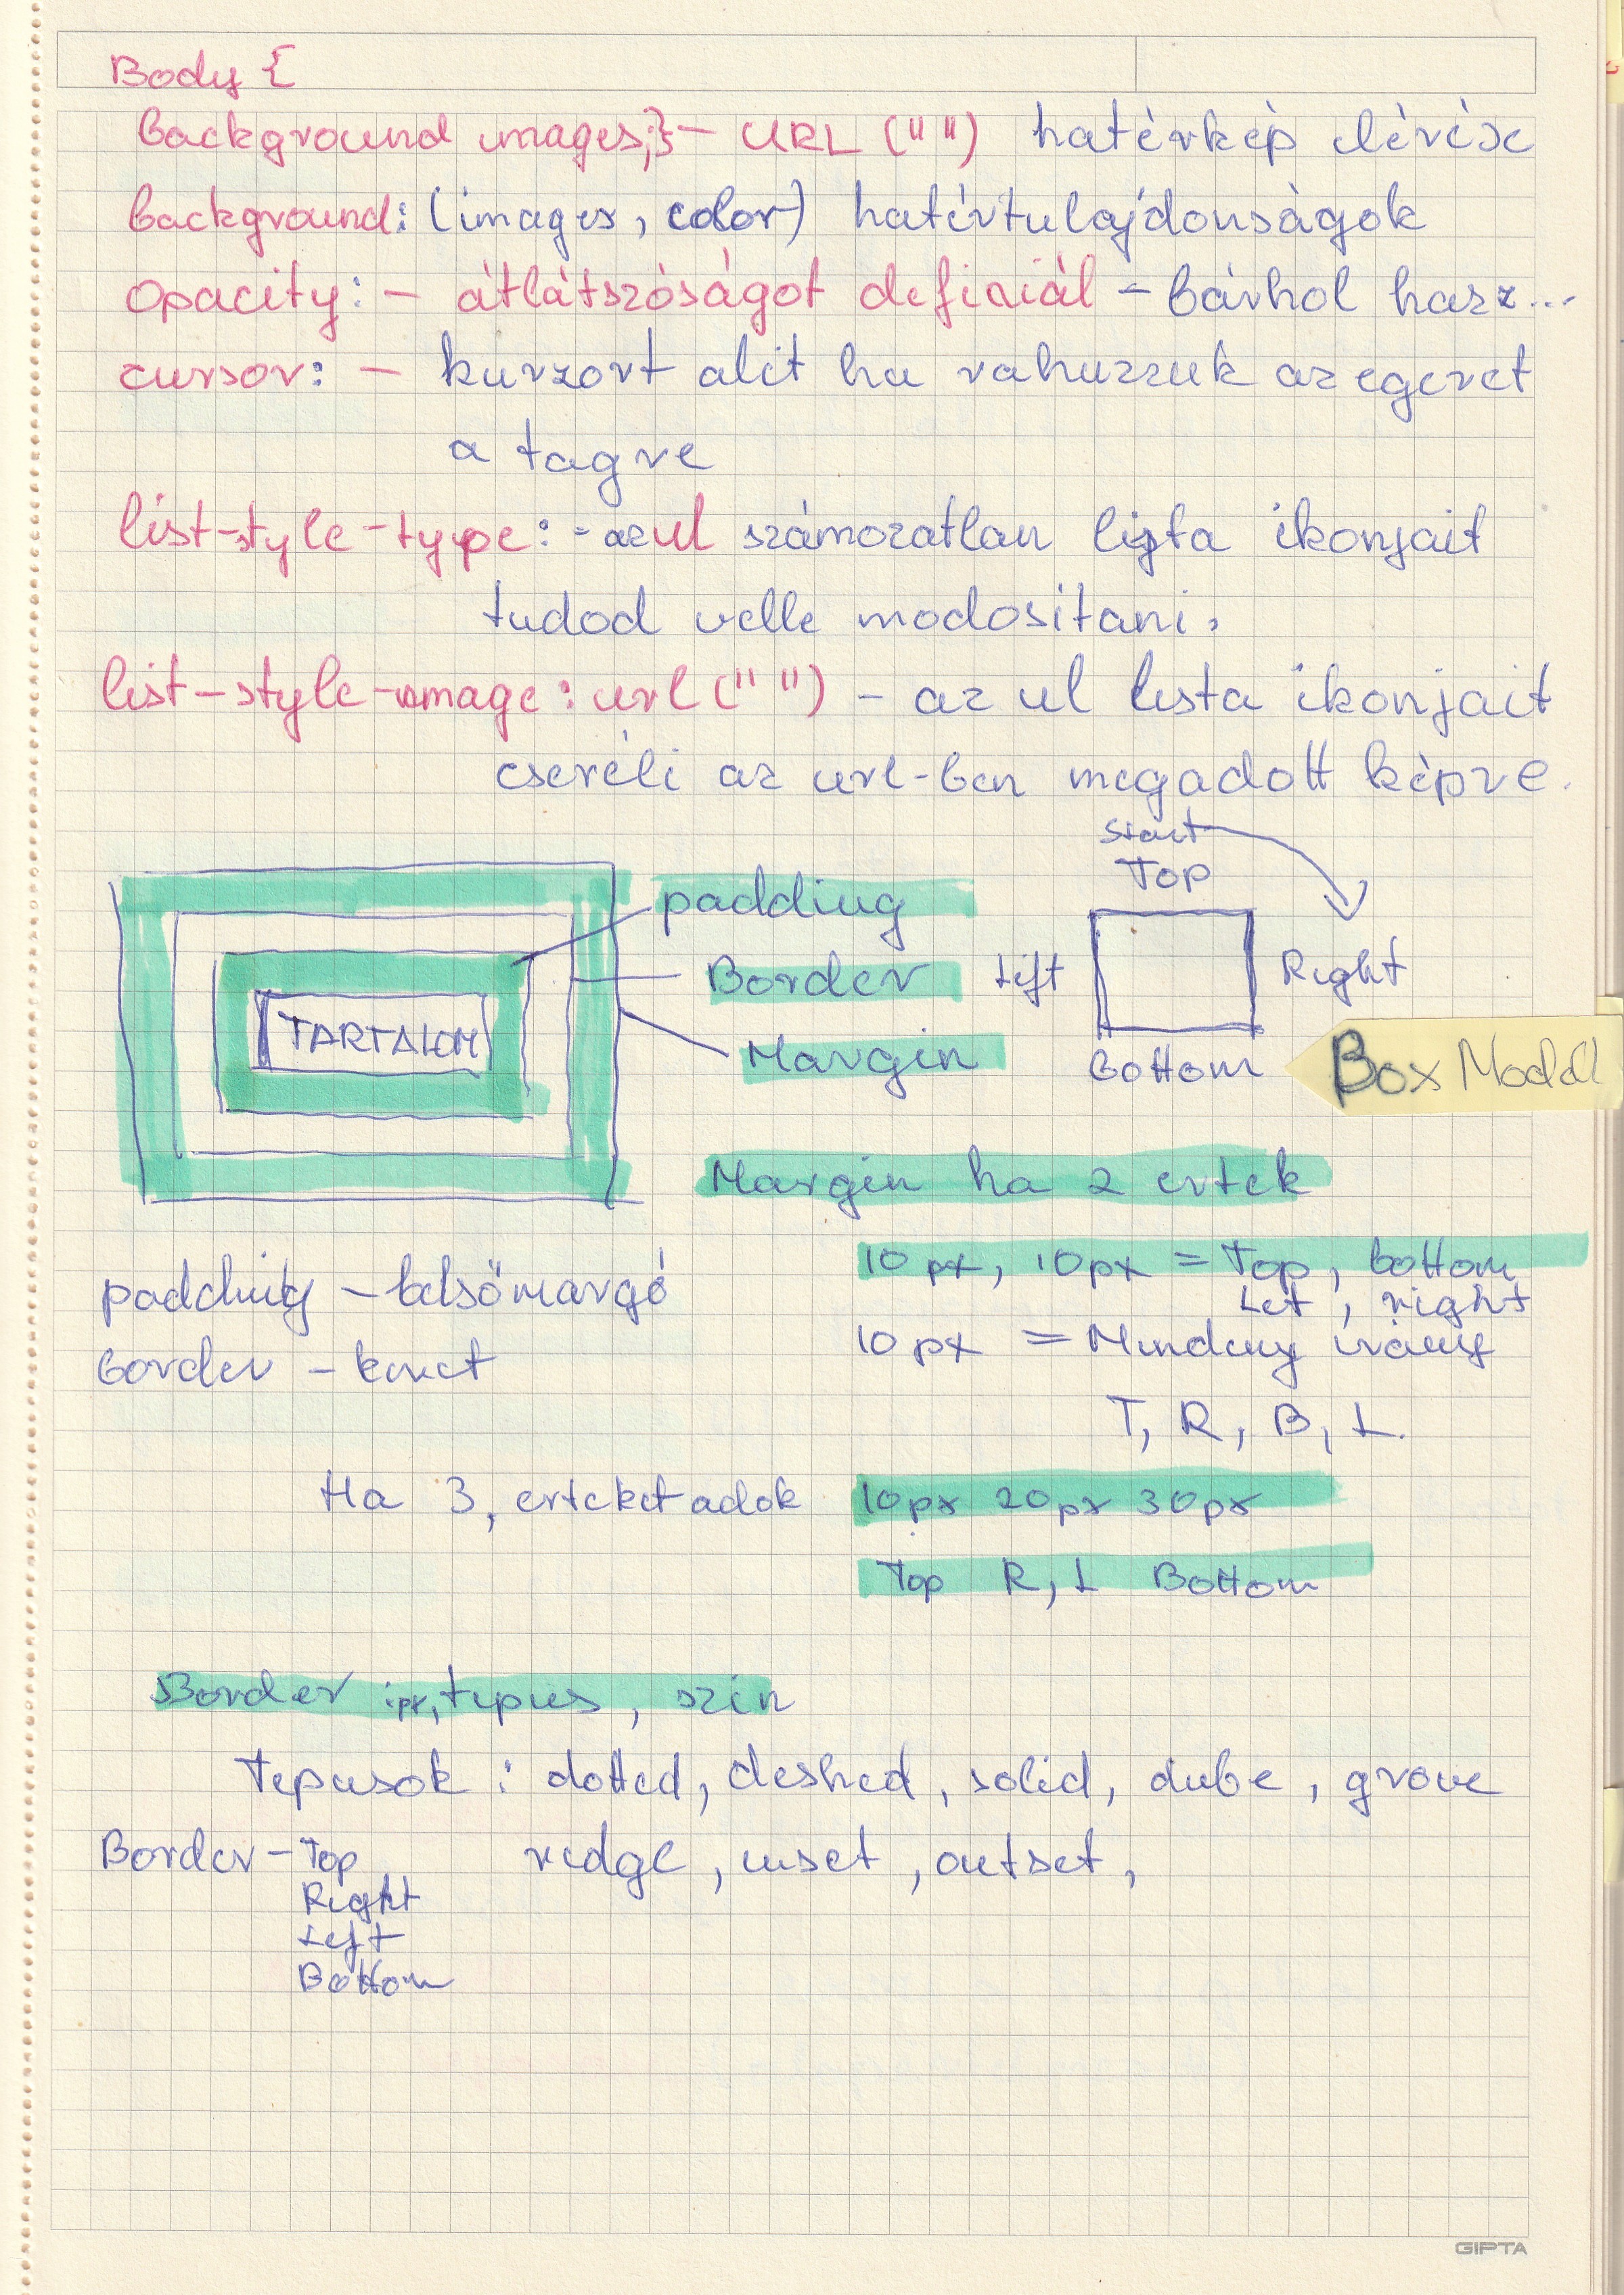 Body {
background images;} – URL (" ") hatérkép elérése
background: (images, color) hatértulajdonságok
opacity: – átlátszóságot definiál – bárhol hasz...
cursor: – kurzort alit ha rahuzzuk az egeret
a tagre
list-style-type: – az ul számozatlan lista ikonjait
tudod velle modositani.
list-style-image: url (" ") – az ul lista ikonjait
cseréli az url-ben megadott képre.
Start
Top
padding
Border
Left
Right
TARTALOM
Margin
Bottom
Box Modell
Margin ha 2 ertek
10 px, 10px = Top, bottom
Let, right
padding – belsőmargó
10 px = Mindeny irány
border – keret
T, R, B, L.
Ha 3, erteket adok 10px 20px 30px
Top R, L Bottom
Border 1px, tipus, szin
Tipusok : dotted, deshed, solid, dube, grove
Border – Top ridge, inset, outset,
Right
Left
Bottom
GIPTA